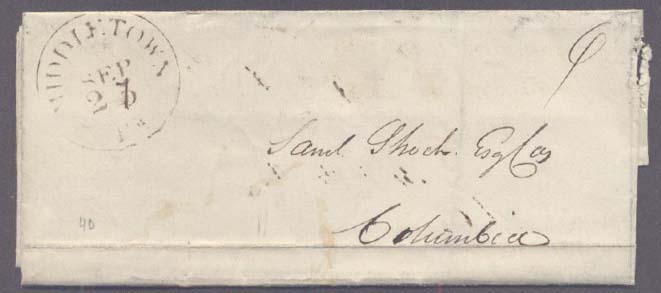 MIDDLETOWN
SEP
Pa
6
Saml. Shoch. Esq Cas
Columbia
40